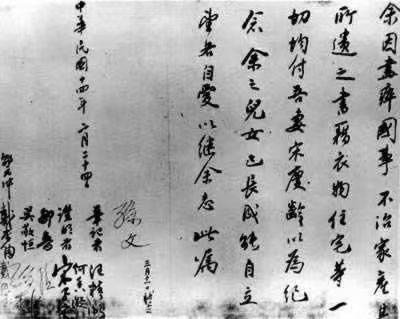 余因盡瘁國事不治家產其
所遺之書籍衣物住宅等一
切均付吾妻宋慶齡以為紀
念余之兒女已長成能自立
望各自愛以繼余志此囑
孫文
三月十一日補簽
中華民國十四年二月二十四
筆記者 汪精衛
何香凝
證明者 宋子文
鄒魯
吳敬恆
戴恩賽
邵元沖